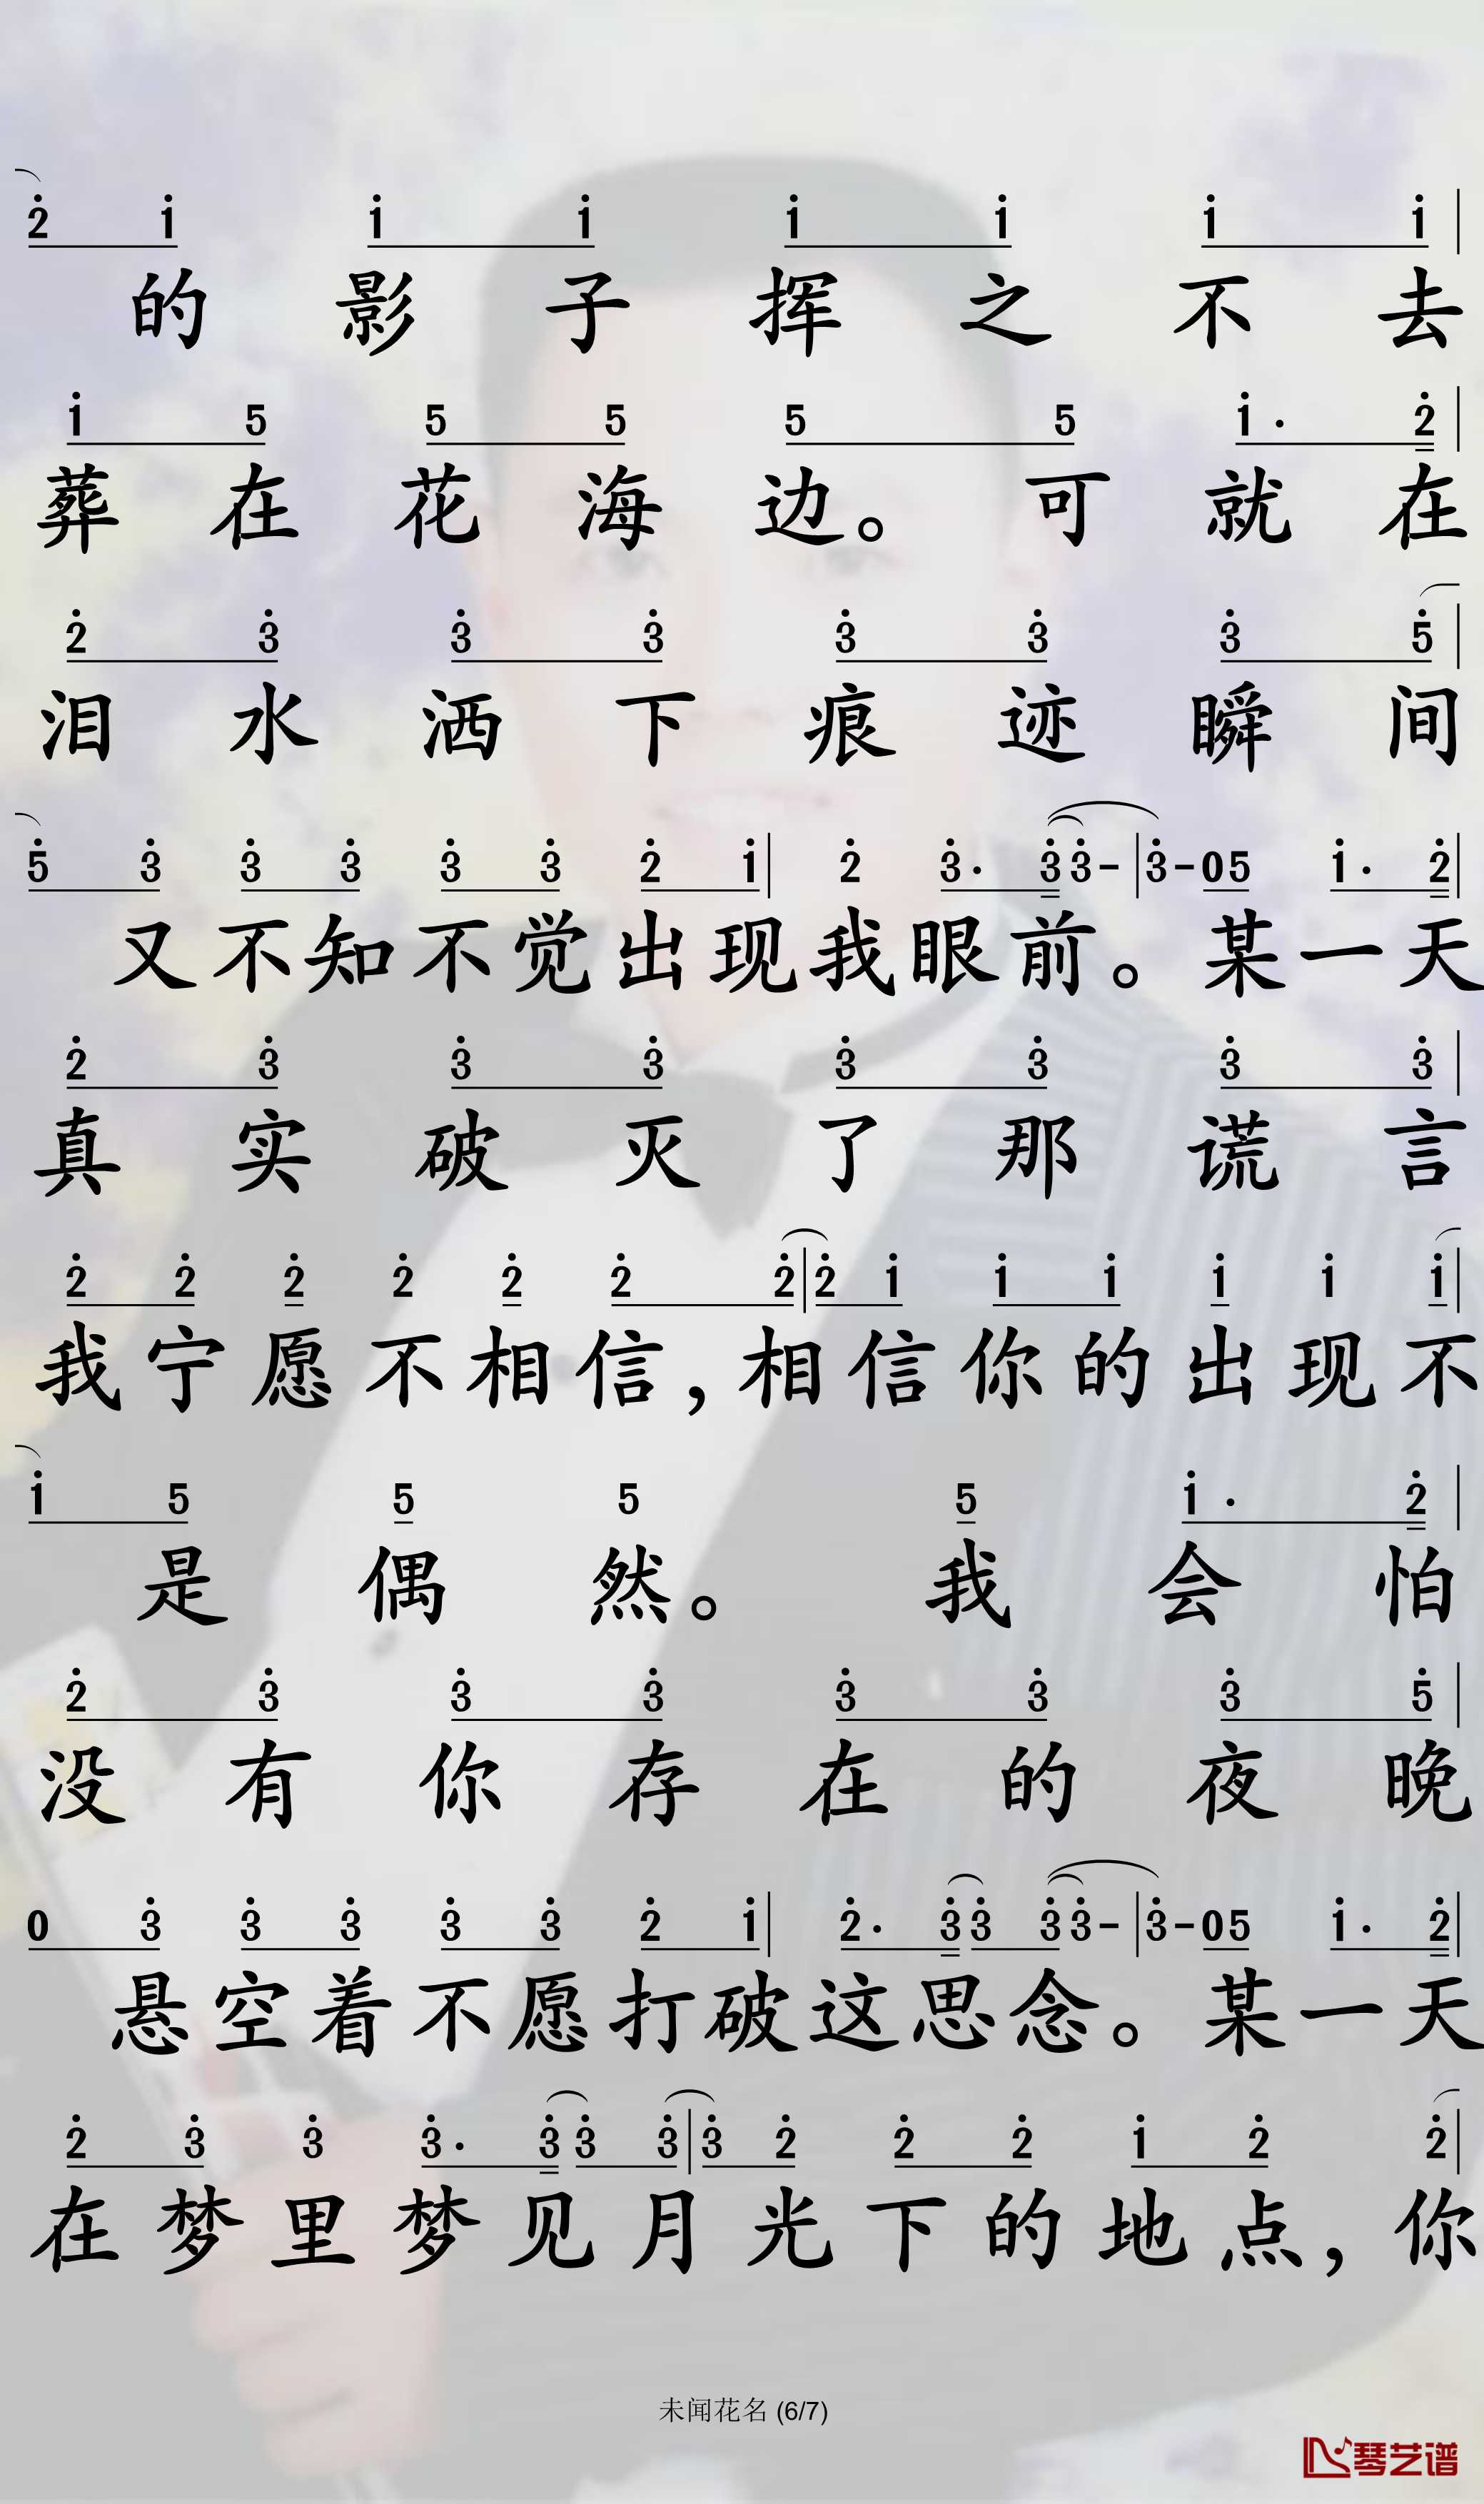 2̇ 1̇ 1̇ 1̇ 1̇ 1̇ 1̇ 1̇
的影子挥之不去
1̇ 5 5 5 5 5 1̇· 2̇
葬在花海边。可就在
2̇ 3̇ 3̇ 3̇ 3̇ 3̇ 3̇ 5̇
泪水洒下痕迹瞬间
5̇ 3̇ 3̇ 3̇ 3̇ 3̇ 2̇ 1̇ | 2̇ 3̇· 3̇ 3̇ - | 3̇ - 0 5 1̇· 2̇
又不知不觉出现我眼前。某一天
2̇ 3̇ 3̇ 3̇ 3̇ 3̇ 3̇ 3̇
真实破灭了那谎言
2̇ 2̇ 2̇ 2̇ 2̇ 2̇ 2̇ | 2̇ 1̇ 1̇ 1̇ 1̇ 1̇ 1̇
我宁愿不相信,相信你的出现不
1̇ 5 5 5 5 1̇· 2̇
是偶然。我会怕
2̇ 3̇ 3̇ 3̇ 3̇ 3̇ 3̇ 5̇
没有你存在的夜晚
0 3̇ 3̇ 3̇ 3̇ 3̇ 2̇ 1̇ | 2̇· 3̇ 3̇ 3̇ 3̇ - | 3̇ - 0 5 1̇· 2̇
悬空着不愿打破这思念。某一天
2̇ 3̇ 3̇ 3̇· 3̇ 3̇ 3̇ | 3̇ 2̇ 2̇ 2̇ 1̇ 2̇ 2̇
在梦里梦见月光下的地点,你
未闻花名 (6/7)
琴艺谱